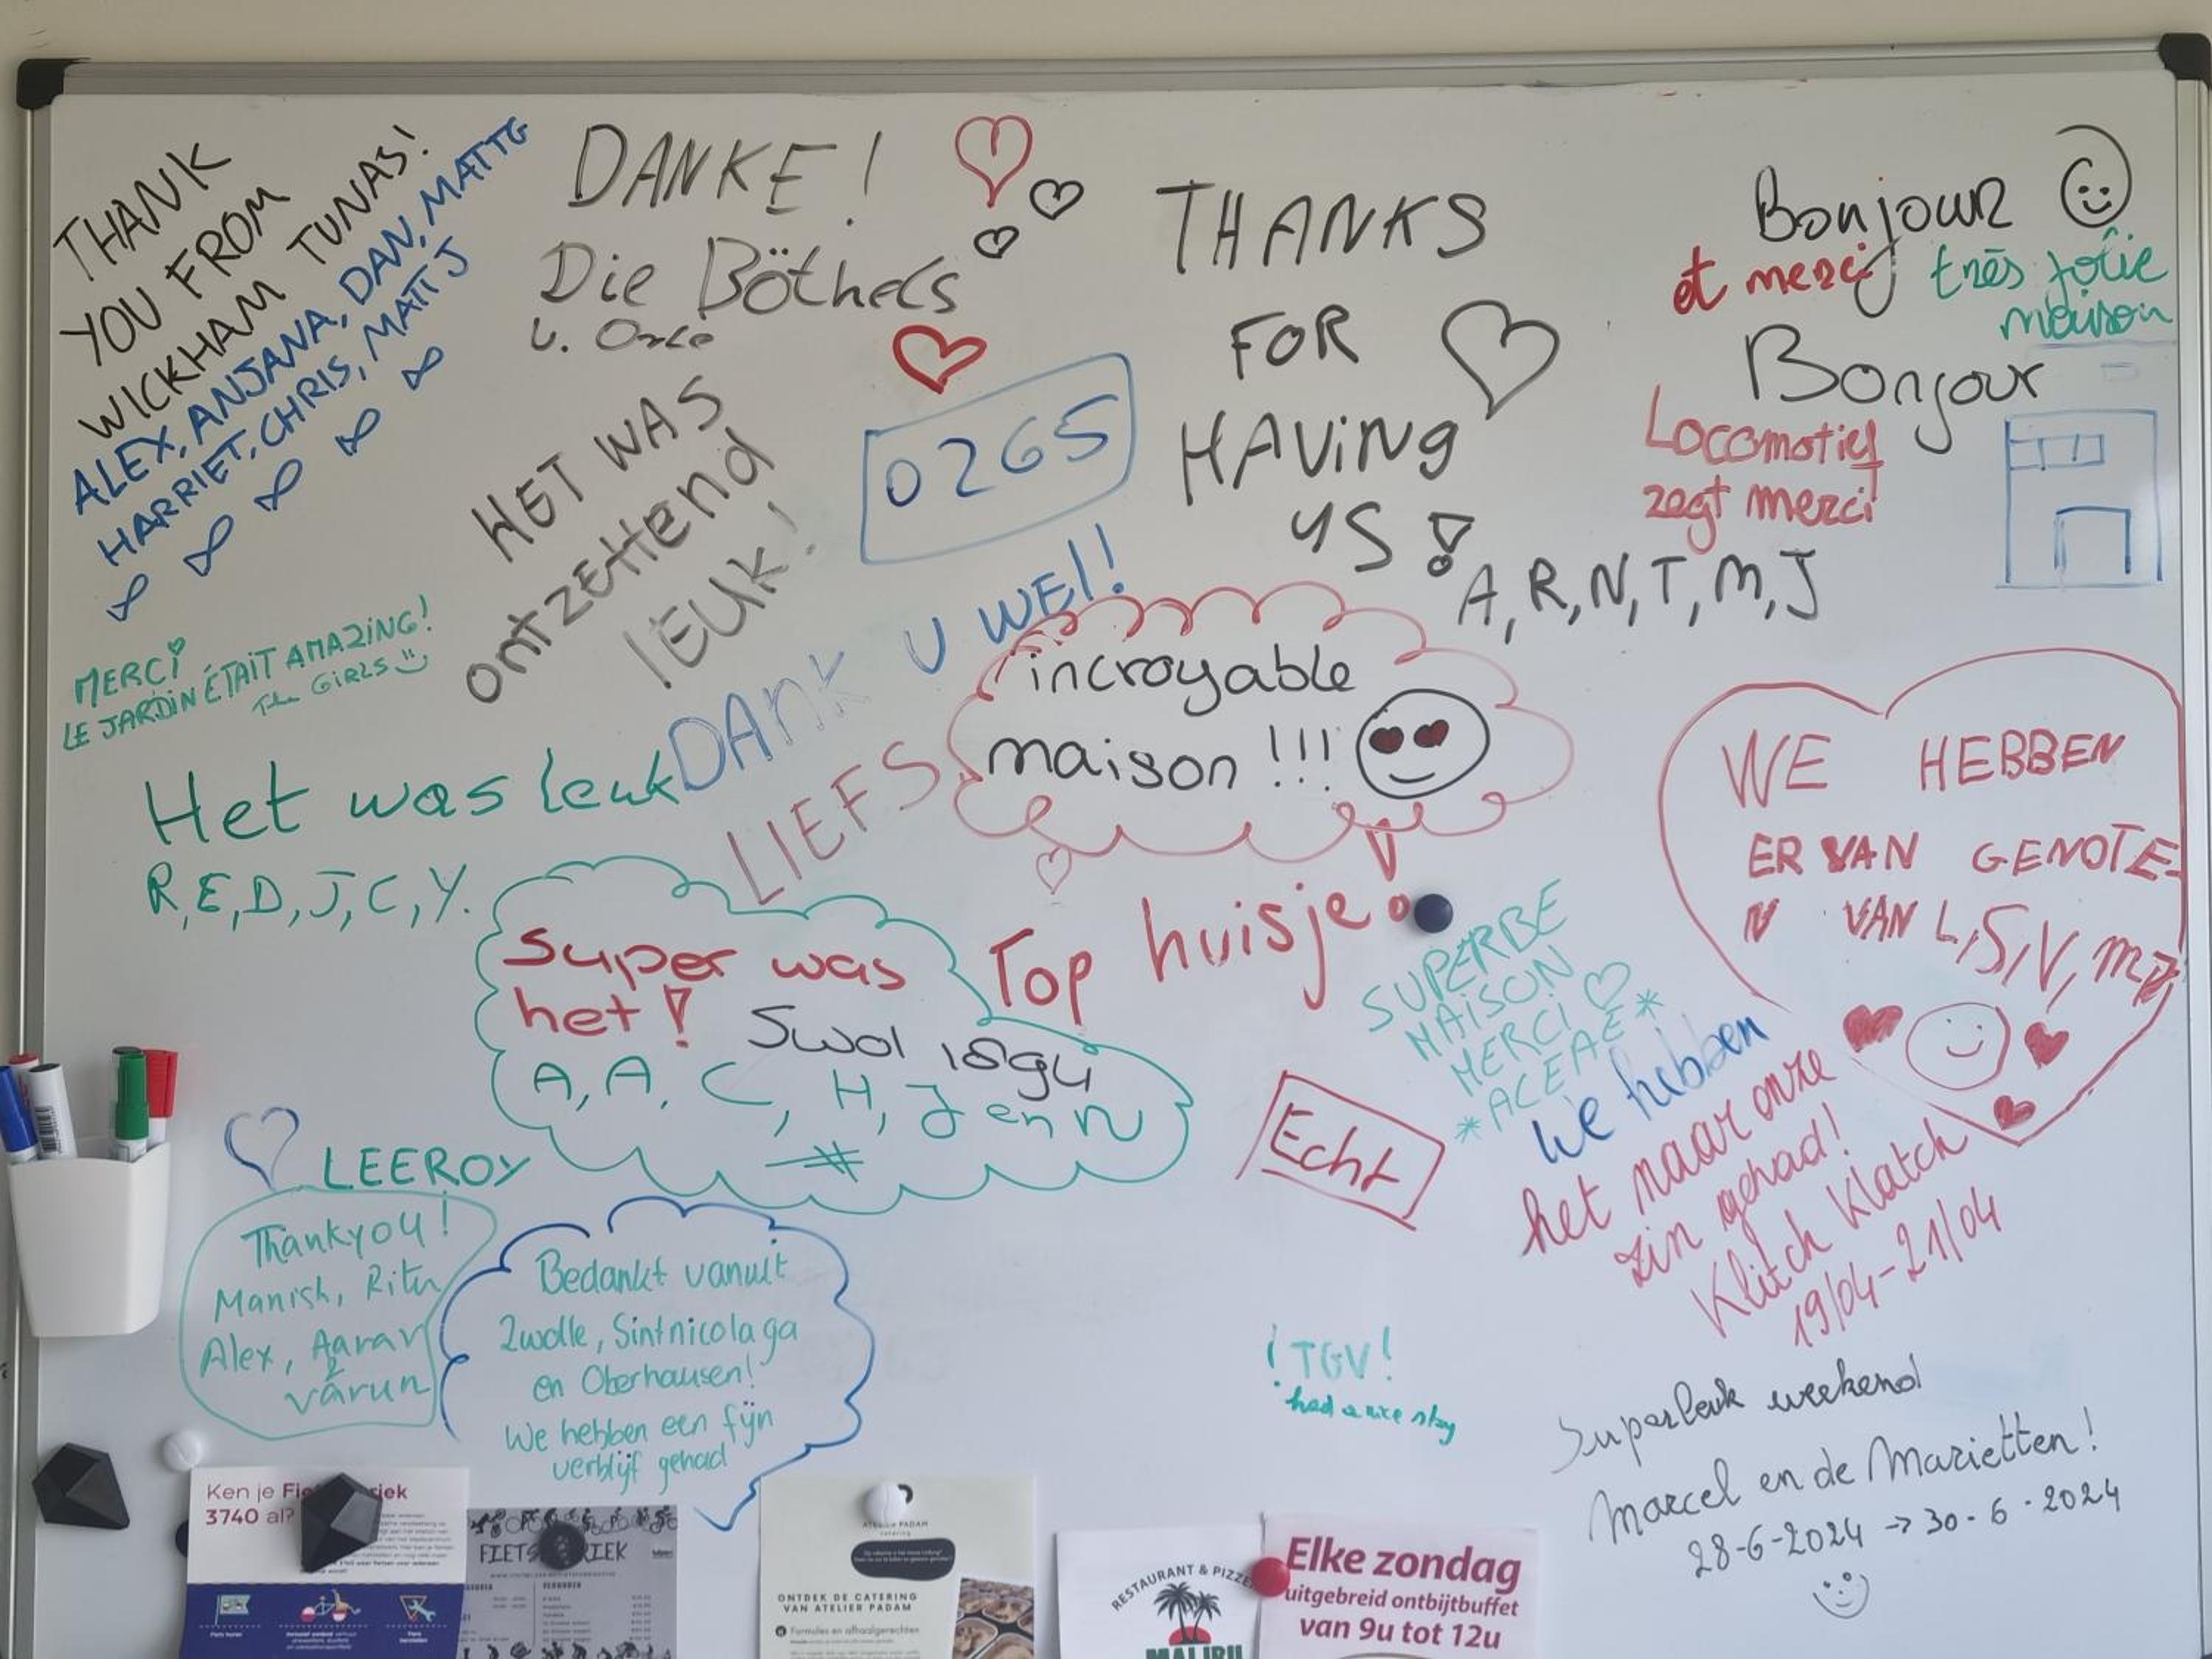 THANK
YOU FROM
WICKHAM TUNAS!
ALEX, ANJANA, DAN, MATTG
HARRIET, CHRIS, MATT J
DANKE!
Die Böthels
u.
THANKS
FOR
HAVING
US!
A, R, N, T, M, J
Bonjour
et merci
très jolie
maison
Bonjour
Locomotief
zegt merci
HET WAS
ontzettend
lEUK!
0265
DANK U WEl!
LIEFS
MERCi
LE JARDIN ÉTAIT AMAZING!
The GIRLS
Het was leuk
R, E, D, J, C, Y.
incroyable
maison !!!
WE HEBBEN
ER VAN GENOTE-
N VAN L, S, V, M,
Super was
het!
Swol 1894
A, A, C, H, J en N
Top huisje!
SUPERBE
MAISON
MERCI
*ACEAE*
Echt
We hebben
het naar onze
zin gehad!
Klitch Klatch
19/04-21/04
LEEROY
Thankyou!
Manish, Ritu
Alex, Aarav
&
varun
Bedankt vanuit
Zwolle, Sintnicolaga
en Oberhausen!
We hebben een fijn
verblijf gehad
¡TGV!
had a nice stay
Superleuk weekend
Marcel en de Marietten!
28-6-2024 → 30-6-2024
Ken je
3740 al?
FIETS RIEK
ATELIER PADAM
ONTDEK DE CATERING
VAN ATELIER PADAM
Formules en afhaalgerechten
RESTAURANT & PIZZE
MALIBU
Elke zondag
uitgebreid ontbijtbuffet
van 9u tot 12u